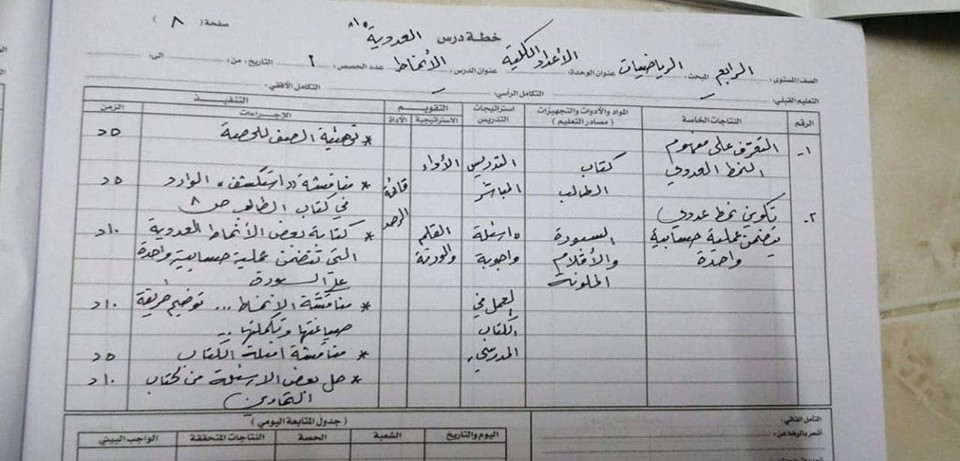 صفحة ( ٨ )
خطة درس
الصف/المستوى: الرابع المبحث: الرياضيات عنوان الوحدة: الأعداد الكلية عنوان الدرس: الأنماط العددية عدد الحصص: ٢ التاريخ: من: الى:
التعليم القبلي: التكامل الرأسي: التكامل الأفقي:
الرقم النتاجات الخاصة المواد والأدوات والتجهيزات ( مصادر التعليم ) استراتيجات التدريس التقويم التنفيذ
الاستراتيجية الأداة الاجراءات الزمن
١- التعرف على مفهوم
النمط العددي
٢- تكوين نمط عددي
يتضمن عملية حسابية
واحدة
كتاب
الطالب
السبورة
والأقلام
الملونة
التدريس
المباشر
اسئلة
واجوبة
العمل في
الكتاب
المدرسي
الأداء
القلم
والورقة
قائمة
الرصد
* تهيئة الصف للحصة ٥ د
* مناقشة «استكشف» الوارد ٥ د
في كتاب الطالب ص ٨
* كتابة بعض الأنماط العددية ١٠ د
التي تتضمن عملية حسابية واحدة
على السبورة
* مناقشة الأنماط ... توضيح طريقة ١٠ د
صياغتها وتكملتها ..
* مناقشة امثلة الكتاب ٥ د
* حل بعض الاسئلة من كتاب ١٠ د
التمارين
التأمل الذاتي :
أشعر بالرضا عن:
( جدول المتابعة اليومي )
اليوم والتاريخ الشعبة الحصة النتاجات المتحققة الواجب البيتي